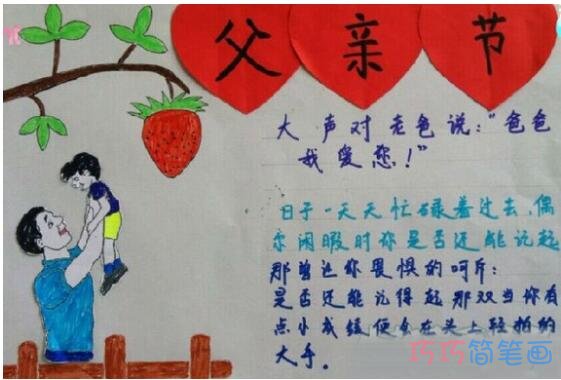 父亲节
大声对老爸说:"爸爸
我爱您!"
日子一天天忙碌着过去,偶
尔闲暇时你是否还能记起
那曾让你畏惧的呵斥;
是否还能记得起那双当你有
点小成绩便会在头上轻拍的
大手。
巧巧简笔画